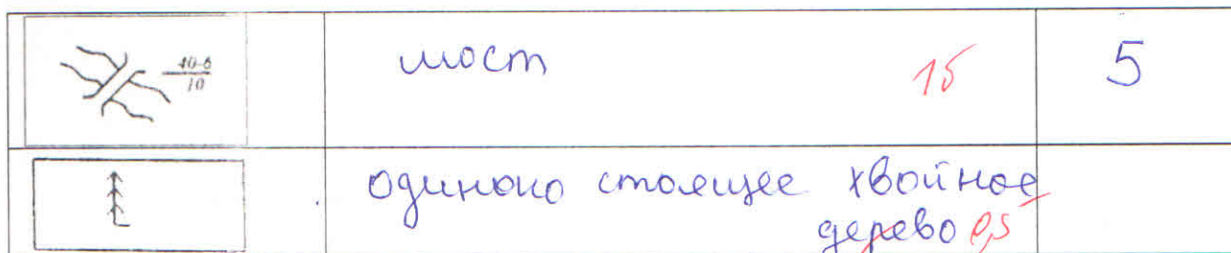 40-6
10
мост 1б 5
одиноко стоящее хвойное
дерево 0,5